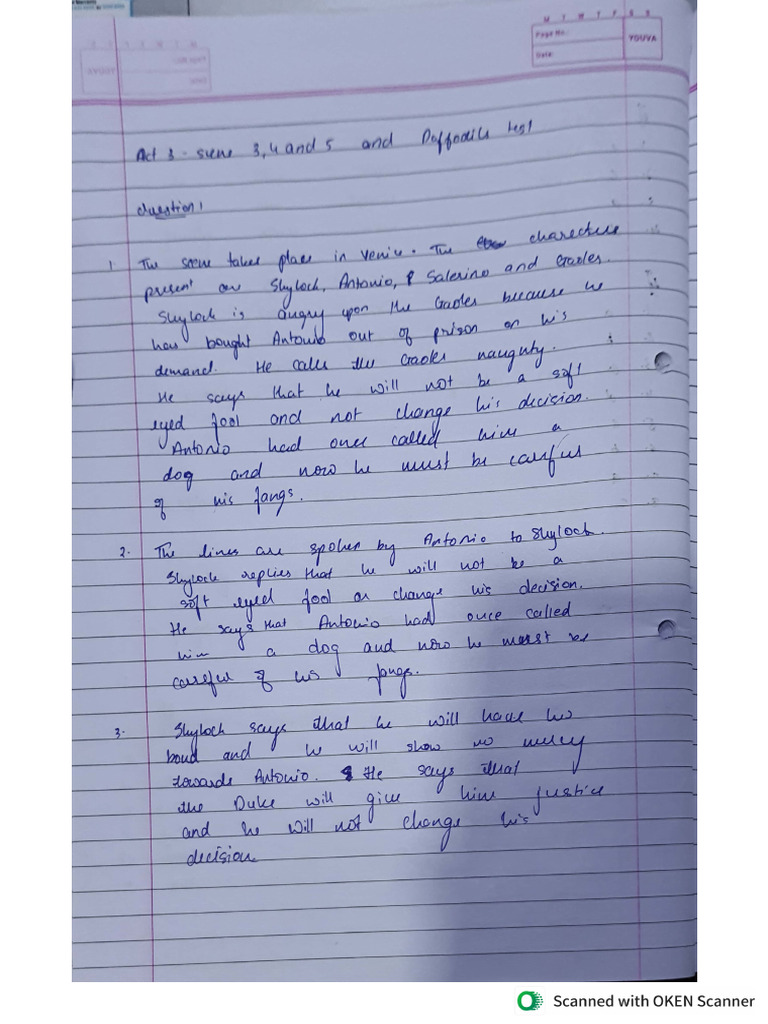 M T W T F S S
Page No.:
YOUVA
Date:
Act 3 - scene 3, 4 and 5 and Daffodils test
Question 1
1. The scene takes place in Venice. The charecters
present are Shylock, Antonio, Salerino and Gaoler.
Shylock is angry upon the Gaoler because he
has bought Antonio out of prison on his
demand. He calls the Gaoler naughty.
He says that he will not be a soft
eyed fool and not change his decision.
Antonio had once called him a
dog and now he must be careful
of his fangs.
2. The lines are spoken by Antonio to Shylock.
Shylock replies that he will not be a
soft eyed fool or change his decision.
He says that Antonio had once called
him a dog and now he must be
careful of his fangs.
3. Shylock says that he will have his
bond and he will show no mercy
towards Antonio. He says that
the Duke will give him justice
and he will not change his
decision.
Scanned with OKEN Scanner